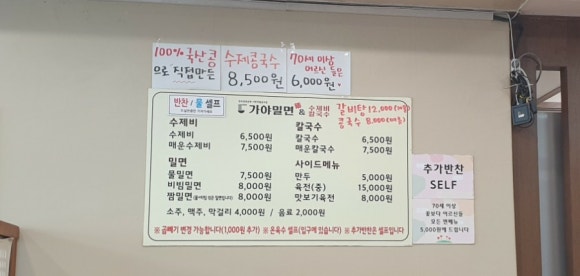 100% 국산콩
으로 직접만든
수제콩국수
8,500원
70세 이상
어르신 들은
6,000원
반찬/물 셀프
가야밀면 & 수제비
칼국수
갈비탕 12,000
콩국수 8,000
수제비
수제비 6,500원
매운수제비 7,500원
밀면
물밀면 7,500원
비빔밀면 8,000원
짬밀면 8,000원
칼국수
칼국수 6,500원
매운칼국수 7,500원
사이드메뉴
만두 5,000원
육전(중) 15,000원
맛보기육전 8,000원
소주, 맥주, 막걸리 4,000원 / 음료 2,000원
※ 곱빼기 변경 가능합니다(1,000원 추가) ※ 온육수 셀프(입구에 있습니다) ※ 추가반찬은 셀프입니다
추가반찬
SELF
70세 이상
꽃보다 어르신들
모든 면메뉴
5,000원에 드립니다